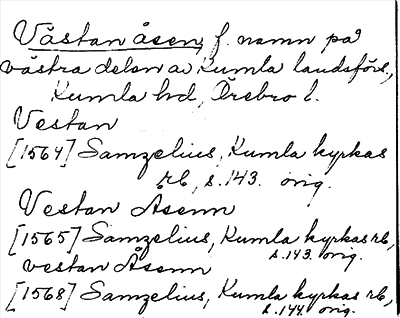 Västan åsen, f. namn på
västra delen av Kumla landsförs.,
Kumla hd, Örebro l.
Vestan
[1564] Samzelius, Kumla kyrkas
rb, s.143. orig.
Vestan Asenn
[1565] Samzelius, Kumla kyrkas rb,
s.143. orig.
vestan Åsenn
[1568] Samzelius, Kumla kyrkas rb,
s.144. orig.